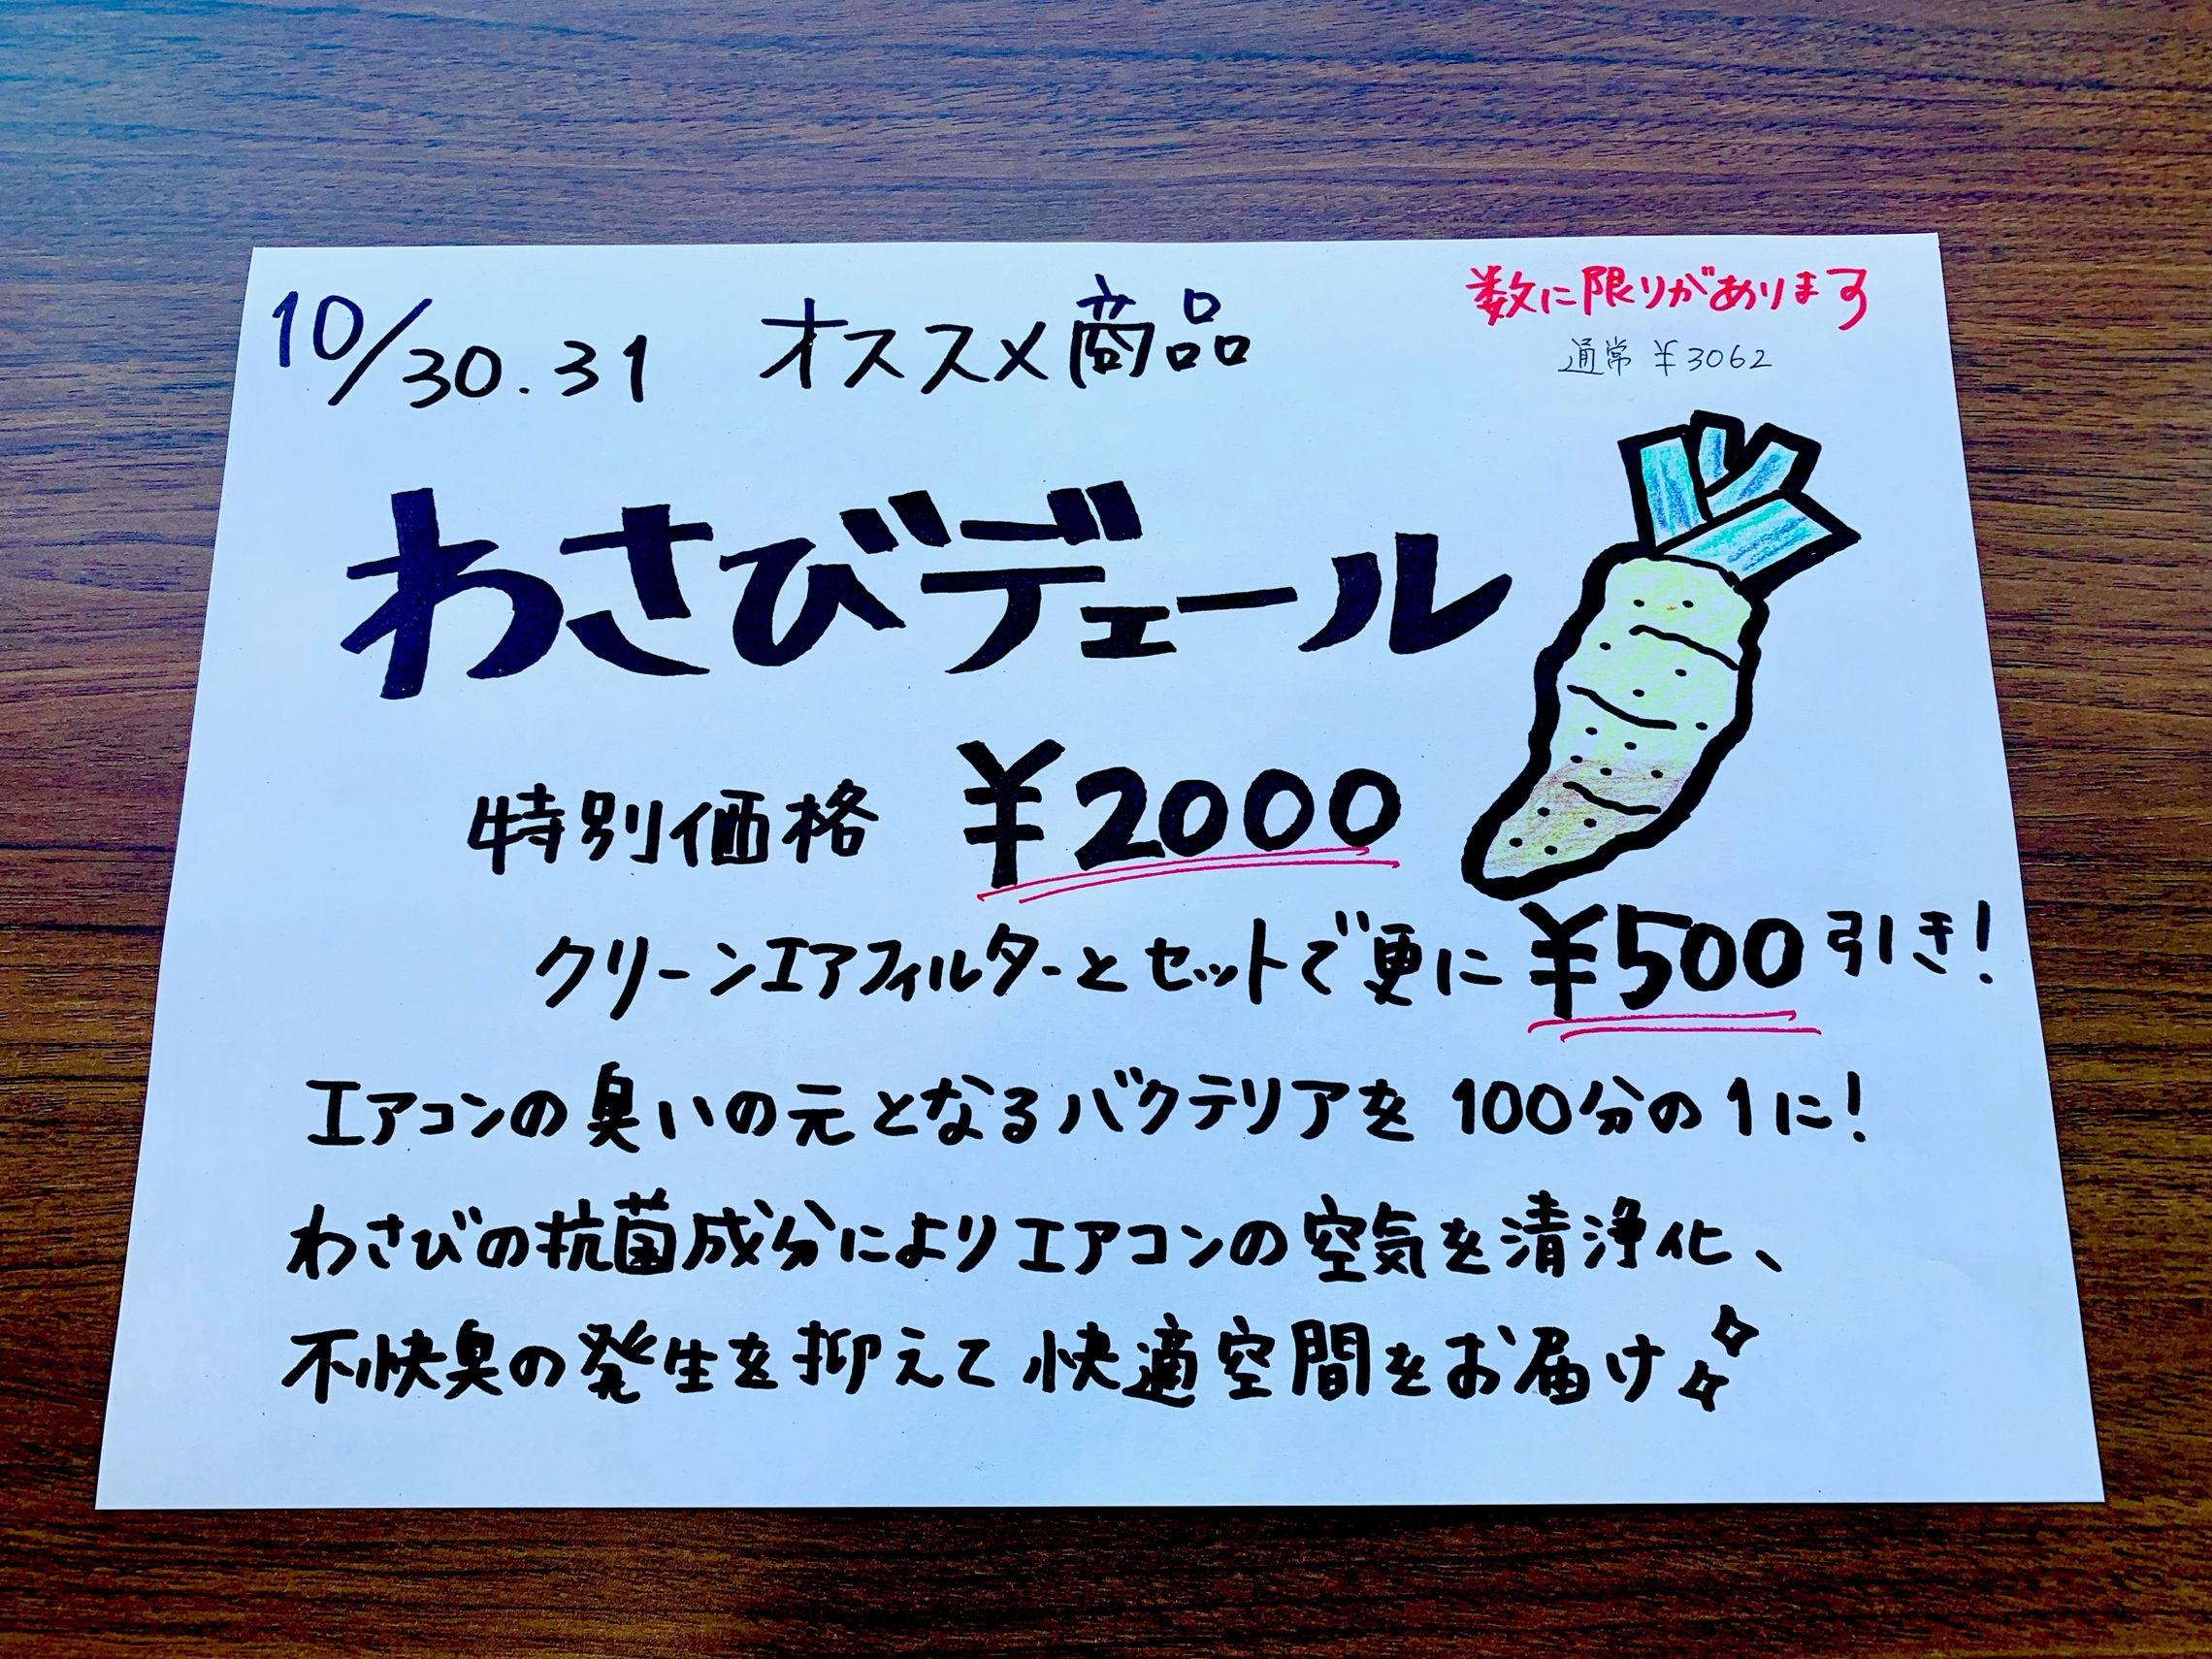 10/30.31 オススメ商品
数に限りがあります
通常 ¥3062
わさびデェール
特別価格 ¥2000
クリーンエアフィルターとセットで更に ¥500引き!
エアコンの臭いの元となるバクテリアを 100分の1に!
わさびの抗菌成分によりエアコンの空気を清浄化、
不快臭の発生を抑えて快適空間をお届け